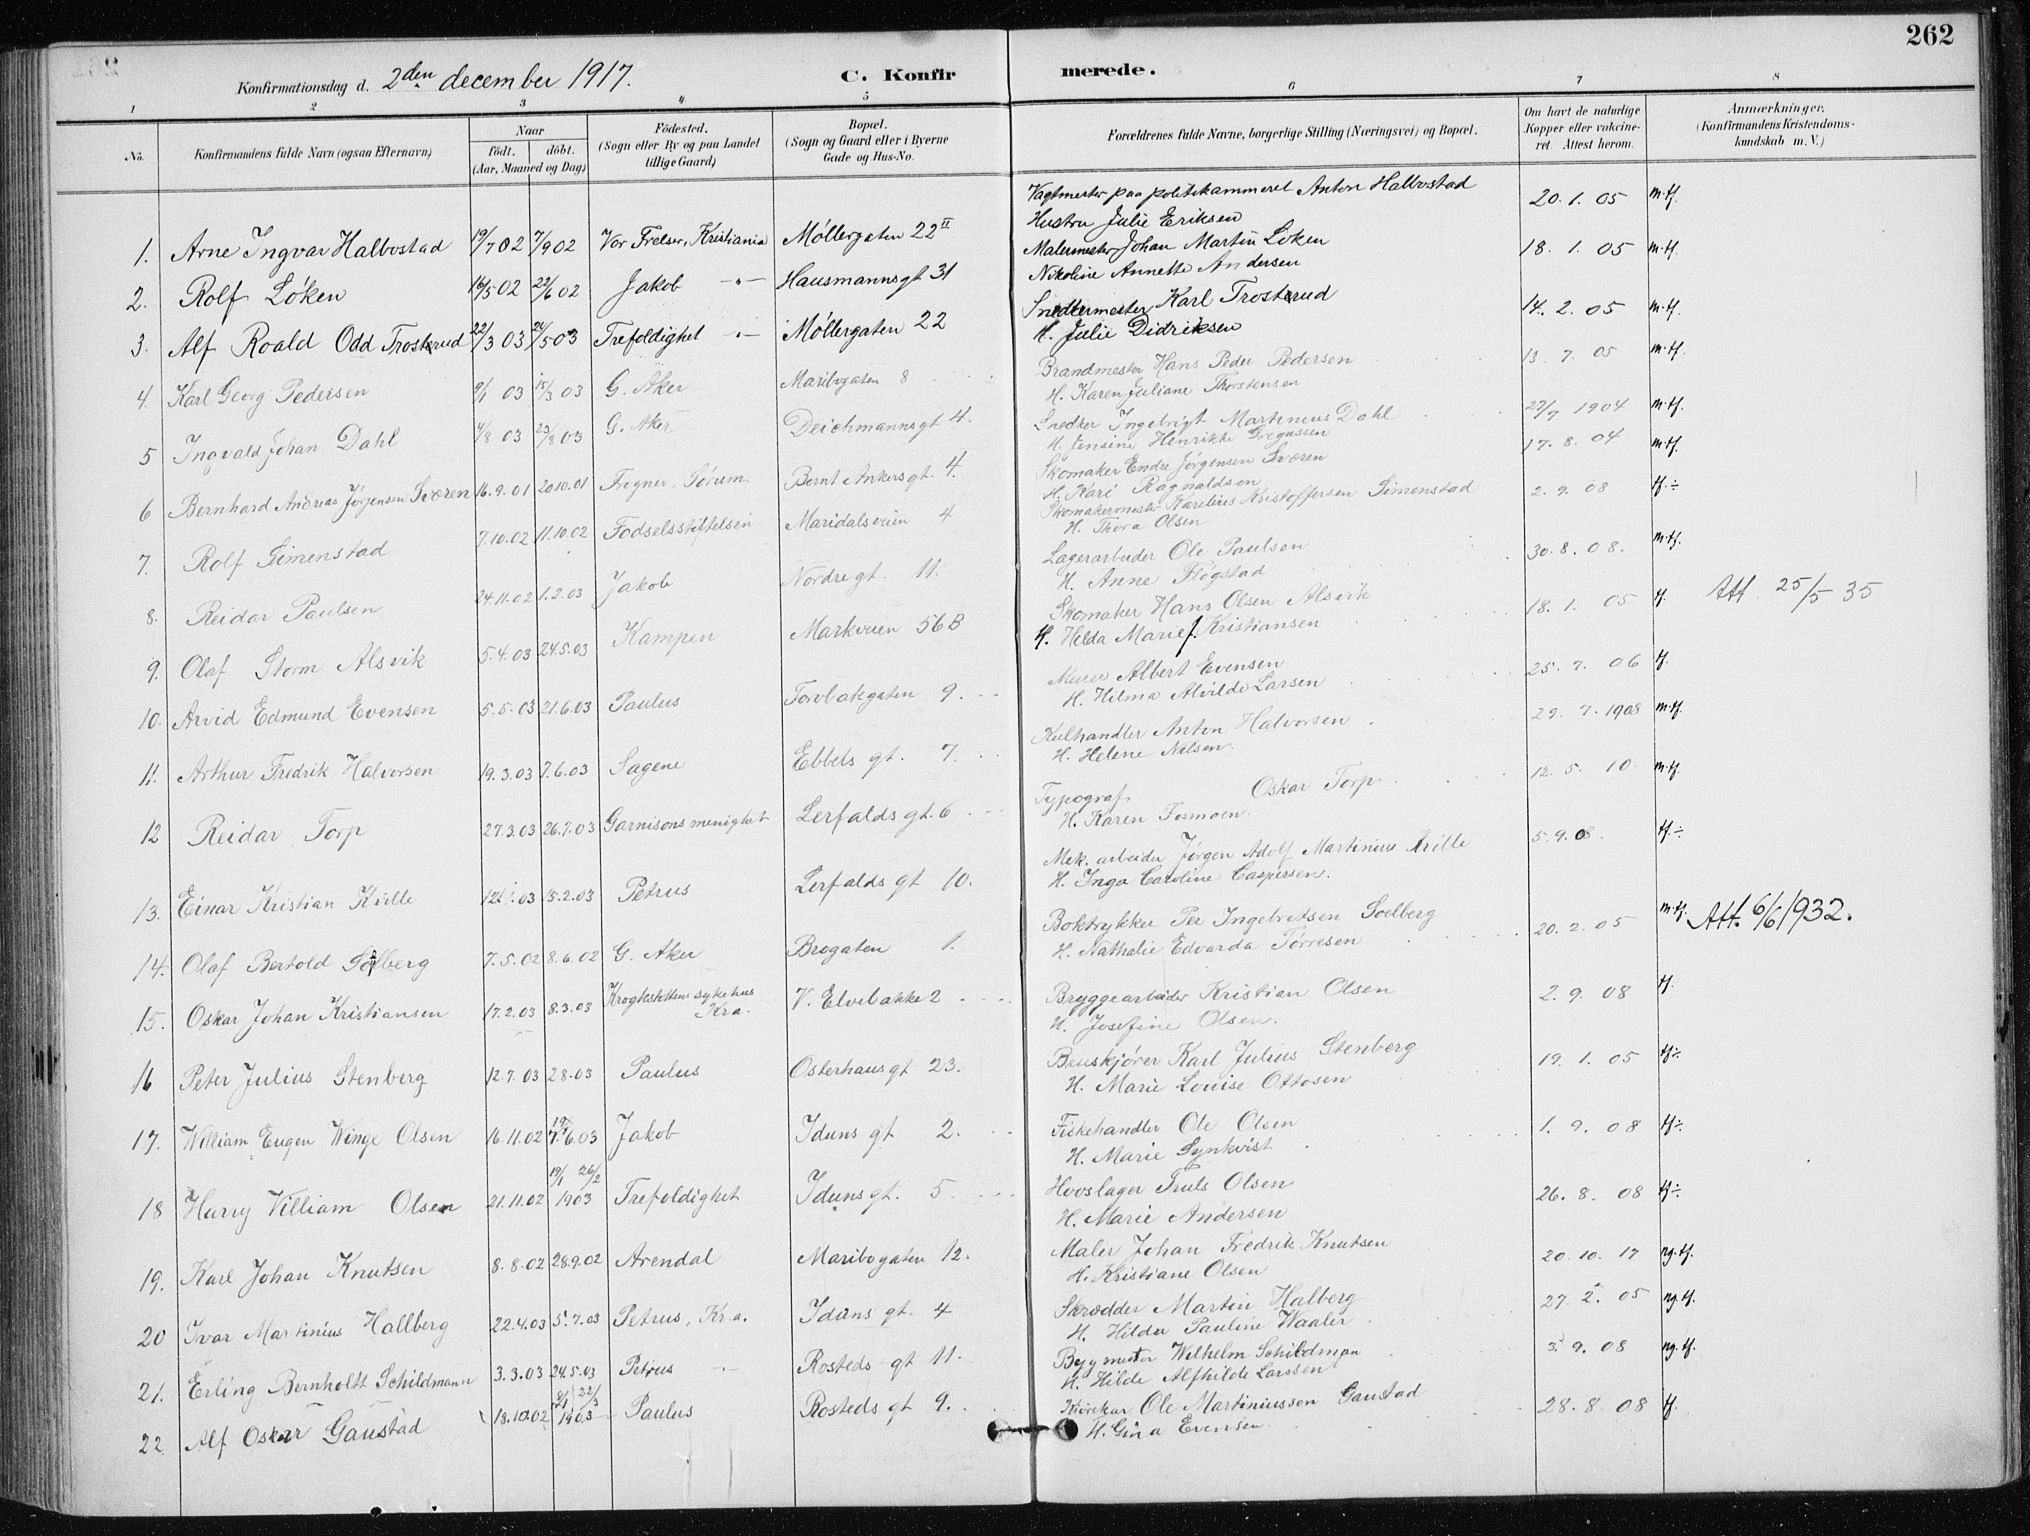 262
Konfirmationsdag d. 2den december 1917. C. Konfirmerede.
1 2 3 4 5 6 7 8
No. Konfirmandens fulde Navn (ogsaa Efternavn) Naar født. døbt. (Aar, Maaned og Dag) Fødested. (Sogn eller By og paa Landet tillige Gaard) Bopæl. (Sogn og Gaard eller i Byerne Gade og Hus-No. Forældrenes fulde Navne, borgerlige Stilling (Næringsvei) og Bopæl. Om havt de naturlige Kopper eller vakcineret. Attest herom. Anmærkninger. (Konfirmandens Kristendomskundskab m. V.)
1. Arne Ingvar Halbostad 19/7 02 7/9 02 Vor Frelser, Kristiania Møllergaten 22 II Vagtmester paa politikammeret Anton Halbostad 20. 1. 05 m.tf.
Hustru Julie Eriksen
2. Rolf Løken 16/5 02 22/6 02 Jakob -"- Hausmannsgt 31 Malermester Johan Martin Løken 18. 1. 05 m.tf.
Nikoline Annette Andersen
3. Alf Roald Odd Trosterud 22/3 03 /5 03 Trefoldighet -"- Møllergaten 22 Snedkermester Karl Trosterud 14. 2. 05 m.tf.
H. Julie Didriksen
4. Karl Georg Pedersen 9/1 03 15/3 03 G. Aker Maribogaten 8 Brandmester Hans Peder Pedersen 13. 7. 05 m.tf.
H. Karen Juliane Thorstensen
5 Ingvald Johan Dahl 4/8 03 23/8 03 G. Aker Deichmannsgt 4. Snedker Ingebrigt Martinius Dahl 27/7 1904 m.tf.
H. Jensine Henrikke Gregussen
6 Bernhard Andreas Jørgensen Sværen 16.9.01 20.10.01 Fogner, Sørum Bernt Ankersgt. 4. Skomaker Endre Jørgensen Sværen 17. 8. 04 m.tf.
H. Kari Ragnaldsen
7. Rolf Simenstad 7.10.02 11.10.02 Fødselsstiftelsen Maridalsveien 4 Skomakermester Karelius Kristoffersen Simenstad 2. 9. 08 tf.÷
H. Thora Olsen
8. Reidar Paulsen 24.11.02 1.2.03 Jakob Nordregt. 11. Lagerarbeider Ole Paulsen 30. 8. 08. m.tf.
H. Anne Fløgstad
9. Olaf Storm Alsvik 5.4.03 24.5.03 Kampen Markveien 56B Skomaker Hans Olsen Alsvik 18. 1. 05 tf. Att. 25/5 35
H. Helda Marie Kristiansen
10. Arvid Edmund Evensen 5.5.03 21.6.03 Paulus Torvbakgaten 9. Murer Albert Evensen 25. 7. 06 tf.
H. Hilma Alvilde Larsen
11. Arthur Fredrik Halvorsen 19.3.03 7.6.03 Sagene Ebbels gt. 7. Kulhandler Anton Halvorsen 29. 7. 1908 m.tf.
H. Helene Nilsen.
12 Reidar Torp 27.3.03 26.7.03 Garnisonsmenighet Lerfaldsgt. 6 Typograf Oskar Torp 12. 5. 10. m.tf.
H. Karen Fosmoen.
13. Einar Kristian Kville 12.1.03 15.2.03 Petrus Lerfaldsgt 10. Mek. arbeider Jørgen Adolf Martinius Kville 5. 9. 08. tf.÷
H. Inga Caroline Caspersen.
14. Olaf Bertold Solberg 7.5.02 8.6.02 G. Aker Brogaten 1. Boktrykker Per Ingebretsen Soelberg 20. 2. 05 m.tf. Att. 6/6 1932.
H. Nathalie Edvarda Tørresen
15. Oskar Johan Kristiansen 17.2.03 8.3.03 Kroghstøttens sykehus Kra. V. Elvebakke 2 Bryggearbeider Kristian Olsen 2. 9. 08 tf.
H. Josefine Olsen.
16 Peter Julius Stenberg 12.7.03 2.8.03 Paulus Osterhausgt 23. Benskjører Karl Julius Stenberg 19. 1. 05 tf÷
H. Marie Louise Ottosen
17. William Eugen Winge Olsen 16.11.02 7.6.03 Jakob Iduns gt 2. Fiskehandler Ole Olsen 1. 9. 08 tf÷.
H. Marie Synkvist
18 Harry Villiam Olsen 21.11.02 19/1 26/2 1903 Trefoldighet Idunsgt. 5 Hovslager Truls Olsen 26. 8. 08 tf÷.
H. Marie Andersen
19. Karl Johan Knutsen 8.8.02 28.9.02 Arendal Maribogaten 12. Maler Johan Fredrik Knutsen 20. 10. 17 ng.tf.
H. Kristiane Olsen
20 Ivar Martinius Hallberg 22.4.03 5.7.03 Petrus, Kr.a. Iduns gt. 4 Skrædder Martin Halberg 27. 2. 05 ng.tf.
H. Hilda Pauline Waaler
21. Erling Bernholtt Schildmann 3.3.03 24.5.03 Petrus -"- Rosteds gt 11. Bygmester Wilhelm Schildman 9. 08 ng.tf.
H. Hilde Alfhilde Larssen
22 Alf Oskar Gaustad 13.10.02 22/3 1903 Paulus Rosteds gt 9. Ole Martiniussen Gaustad 28. 8. 08 tf.
H. Gina Evensen.